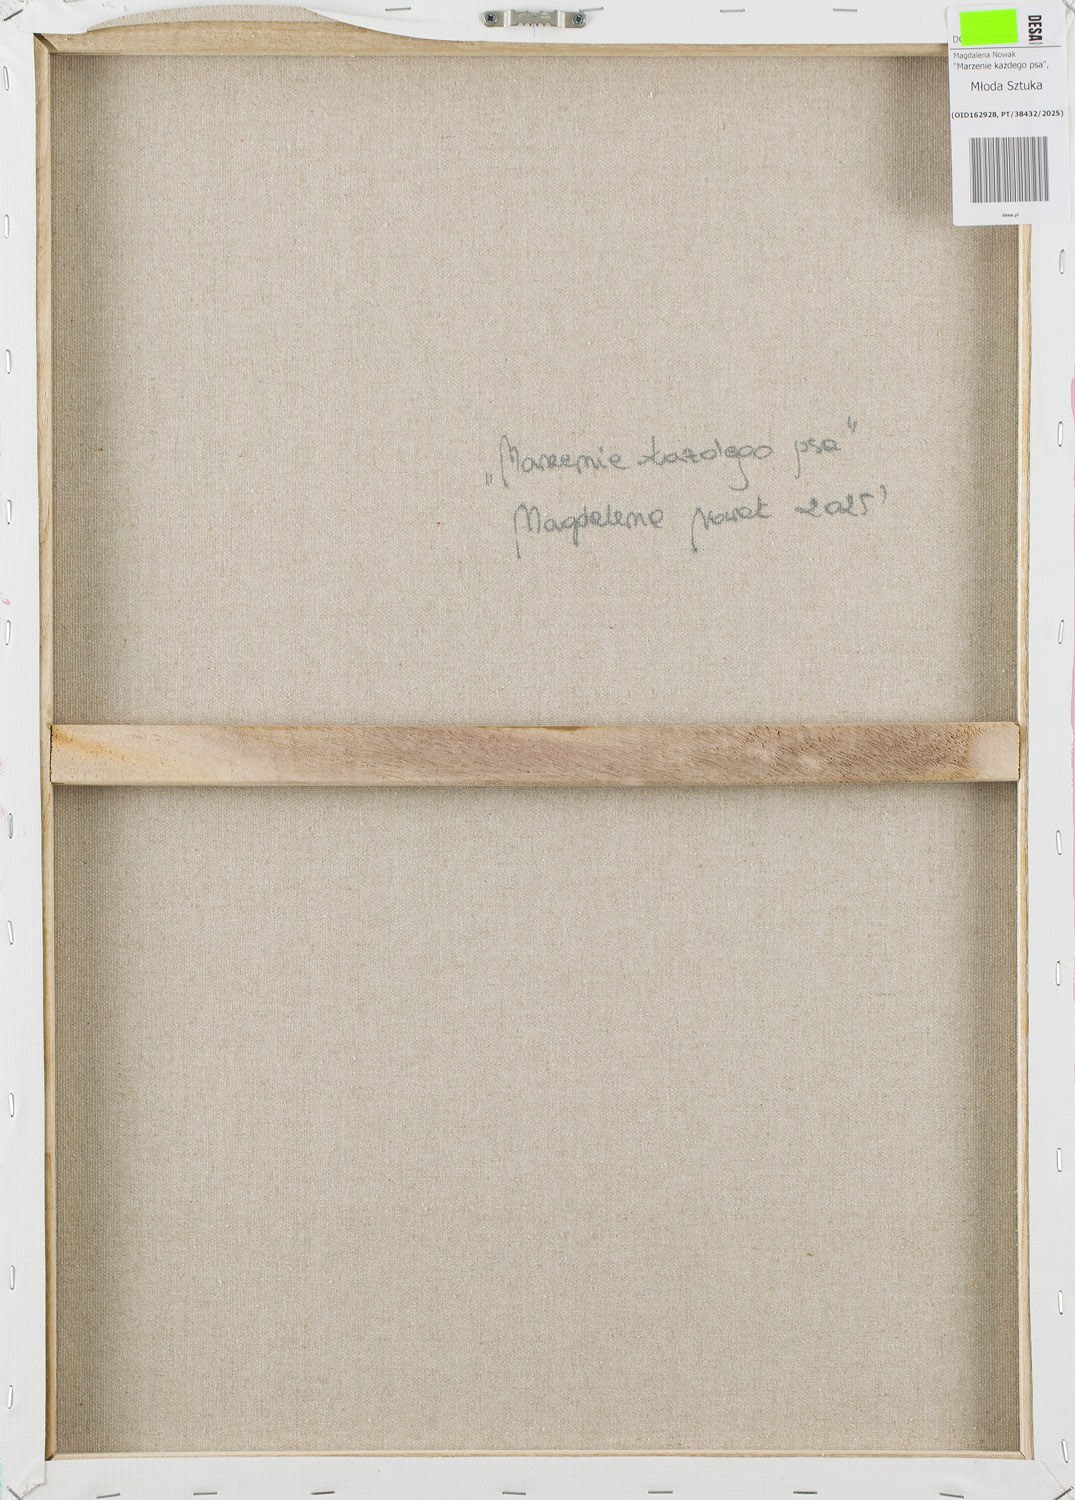 DESA
Magdalena Nowak
"Marzenie każdego psa",
Młoda Sztuka
(OID162928, PT/38432/2025)
desa.pl
„Marzenie każdego psa”
Magdalena Nowak 2025'